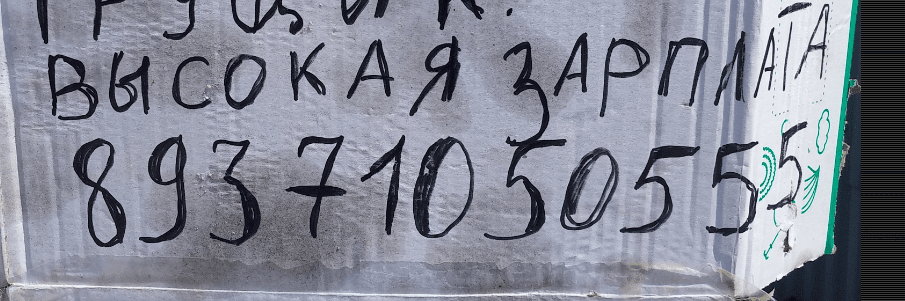 ВЫСОКАЯ ЗАРПЛАТА
89371050555